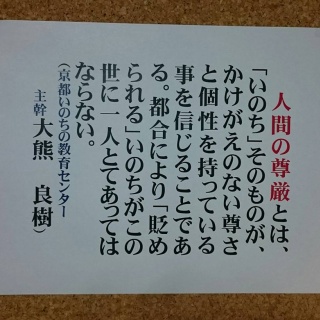 人間の尊厳とは、
「いのち」そのものが、
かけがえのない尊さ
と個性を持っている
事を信じることであ
る。都合により「貶め
られる」いのちがこの
世に一人とてあっては
ならない。
(京都いのちの教育センター
主幹 大熊 良樹)